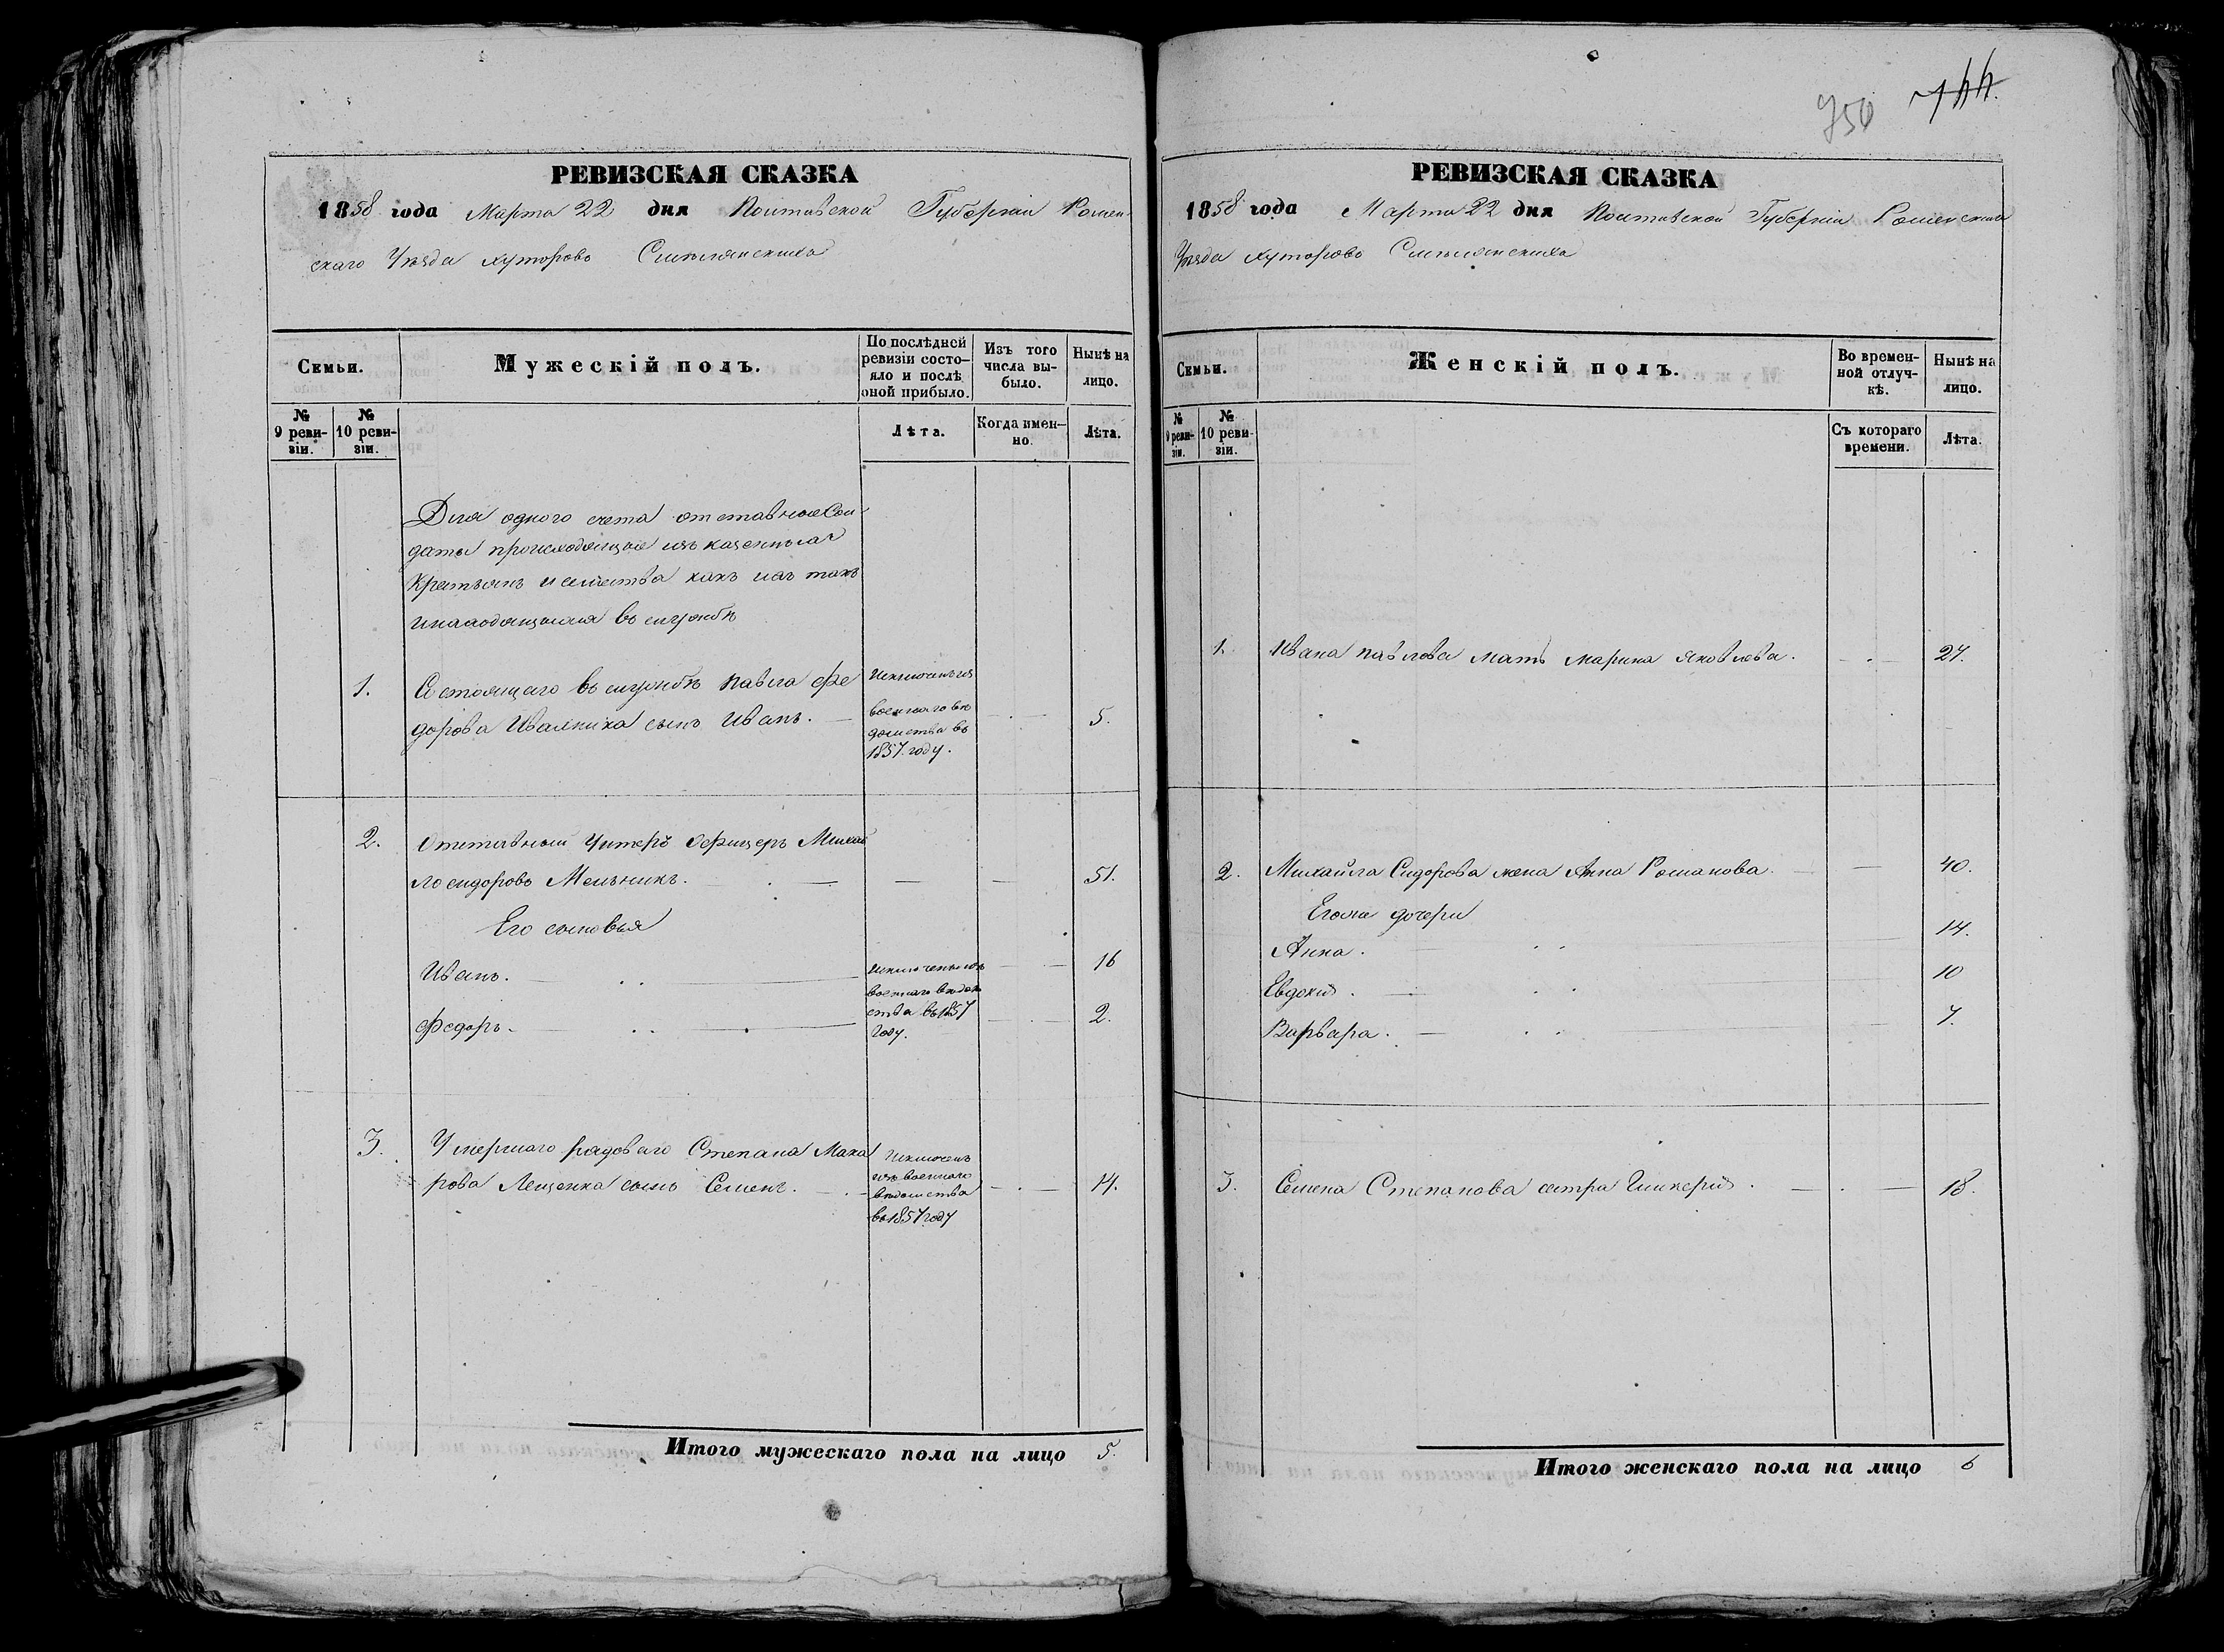 750 744.
РЕВИЗСКАЯ СКАЗКА
1858 года Марта 22 дня Полтавской Губерніи Ромен-
скаго Уѣзда хуторовъ
Семьи.
Мужескій полъ.
По послѣдней ревизіи состо-яло и послѣ оной прибыло.
Изъ того числа вы-было.
Нынѣ на лицо.
№ 9 реви-зіи.
№ 10 реви-зіи.
Лѣта.
Когда имен-но.
Лѣта.
Для одного счета отставные Сол
даты происходящіе изъ казенныхъ
Крестьянъ и семейства какъ ихъ такъ
и находящихся въ службѣ
1. Состоящаго въ службѣ Павла Фе
дорова сынъ Иванъ. 5.
Исключенъ изъ
военнаго вѣ
домства въ
1857 году.
2. Отставный Унтеръ Офицеръ Михай
ло Сидоровъ Мельникъ. 51.
Его сыновья
Иванъ. 16
Федоръ. 2.
исключены изъ
военнаго вѣдом
ства въ 1857
году.
3. Умершаго рядоваго Степана Мака
рова Лещенка сынъ Семенъ. 14.
Исключенъ
изъ военнаго
вѣдомства
въ 1857 году
Итого мужескаго пола на лицо 5.
РЕВИЗСКАЯ СКАЗКА
1858 года Марта 22 дня Полтавской Губерніи Роменскаго
Уѣзда хуторовъ
Семьи.
Женскій полъ.
Во времен-ной отлуч-кѣ.
Нынѣ на лицо.
№ 9 реви-зіи.
№ 10 реви-зіи.
Съ котораго времени.
Лѣта.
1. Ивана Павлова мать Марина Яковлева. 27.
2. Михайла Сидорова жена Анна Романова. 40.
Егоже дочери
Анна. 14.
Евдокія. 10
Варвара. 7.
3. Семена Степанова сестра Гликерія. 18.
Итого женскаго пола на лицо 6